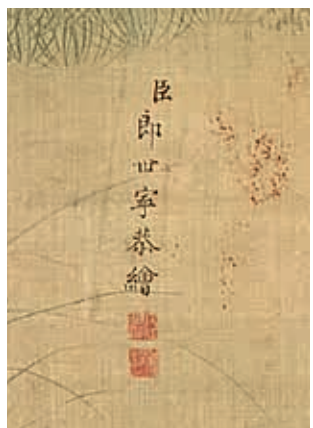 臣郎世寧恭繪